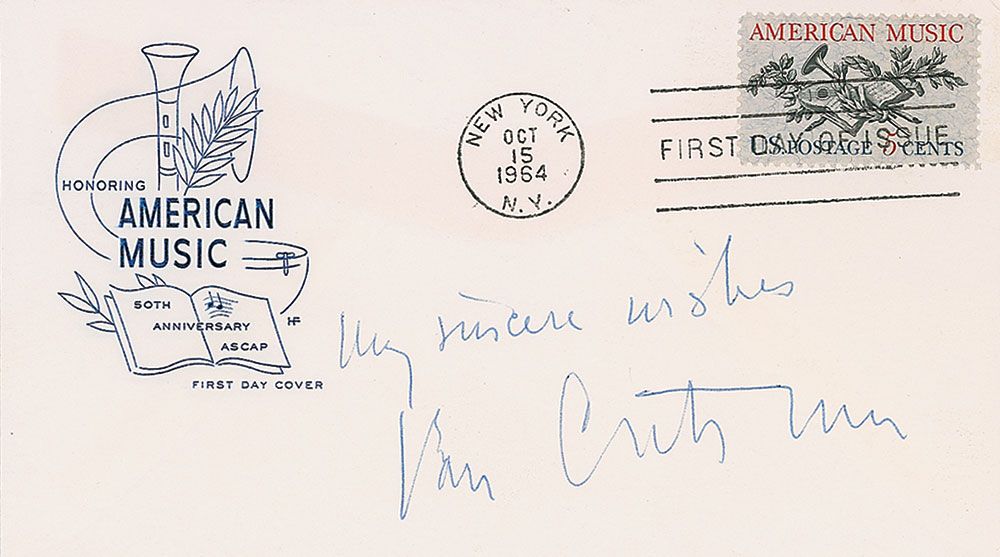 AMERICAN MUSIC
U.S. POSTAGE 5 CENTS
FIRST DAY OF ISSUE
NEW YORK
OCT
15
1964
N.Y.
HONORING
AMERICAN
MUSIC
50TH
ANNIVERSARY
ASCAP
HF
FIRST DAY COVER
My sincere wishes